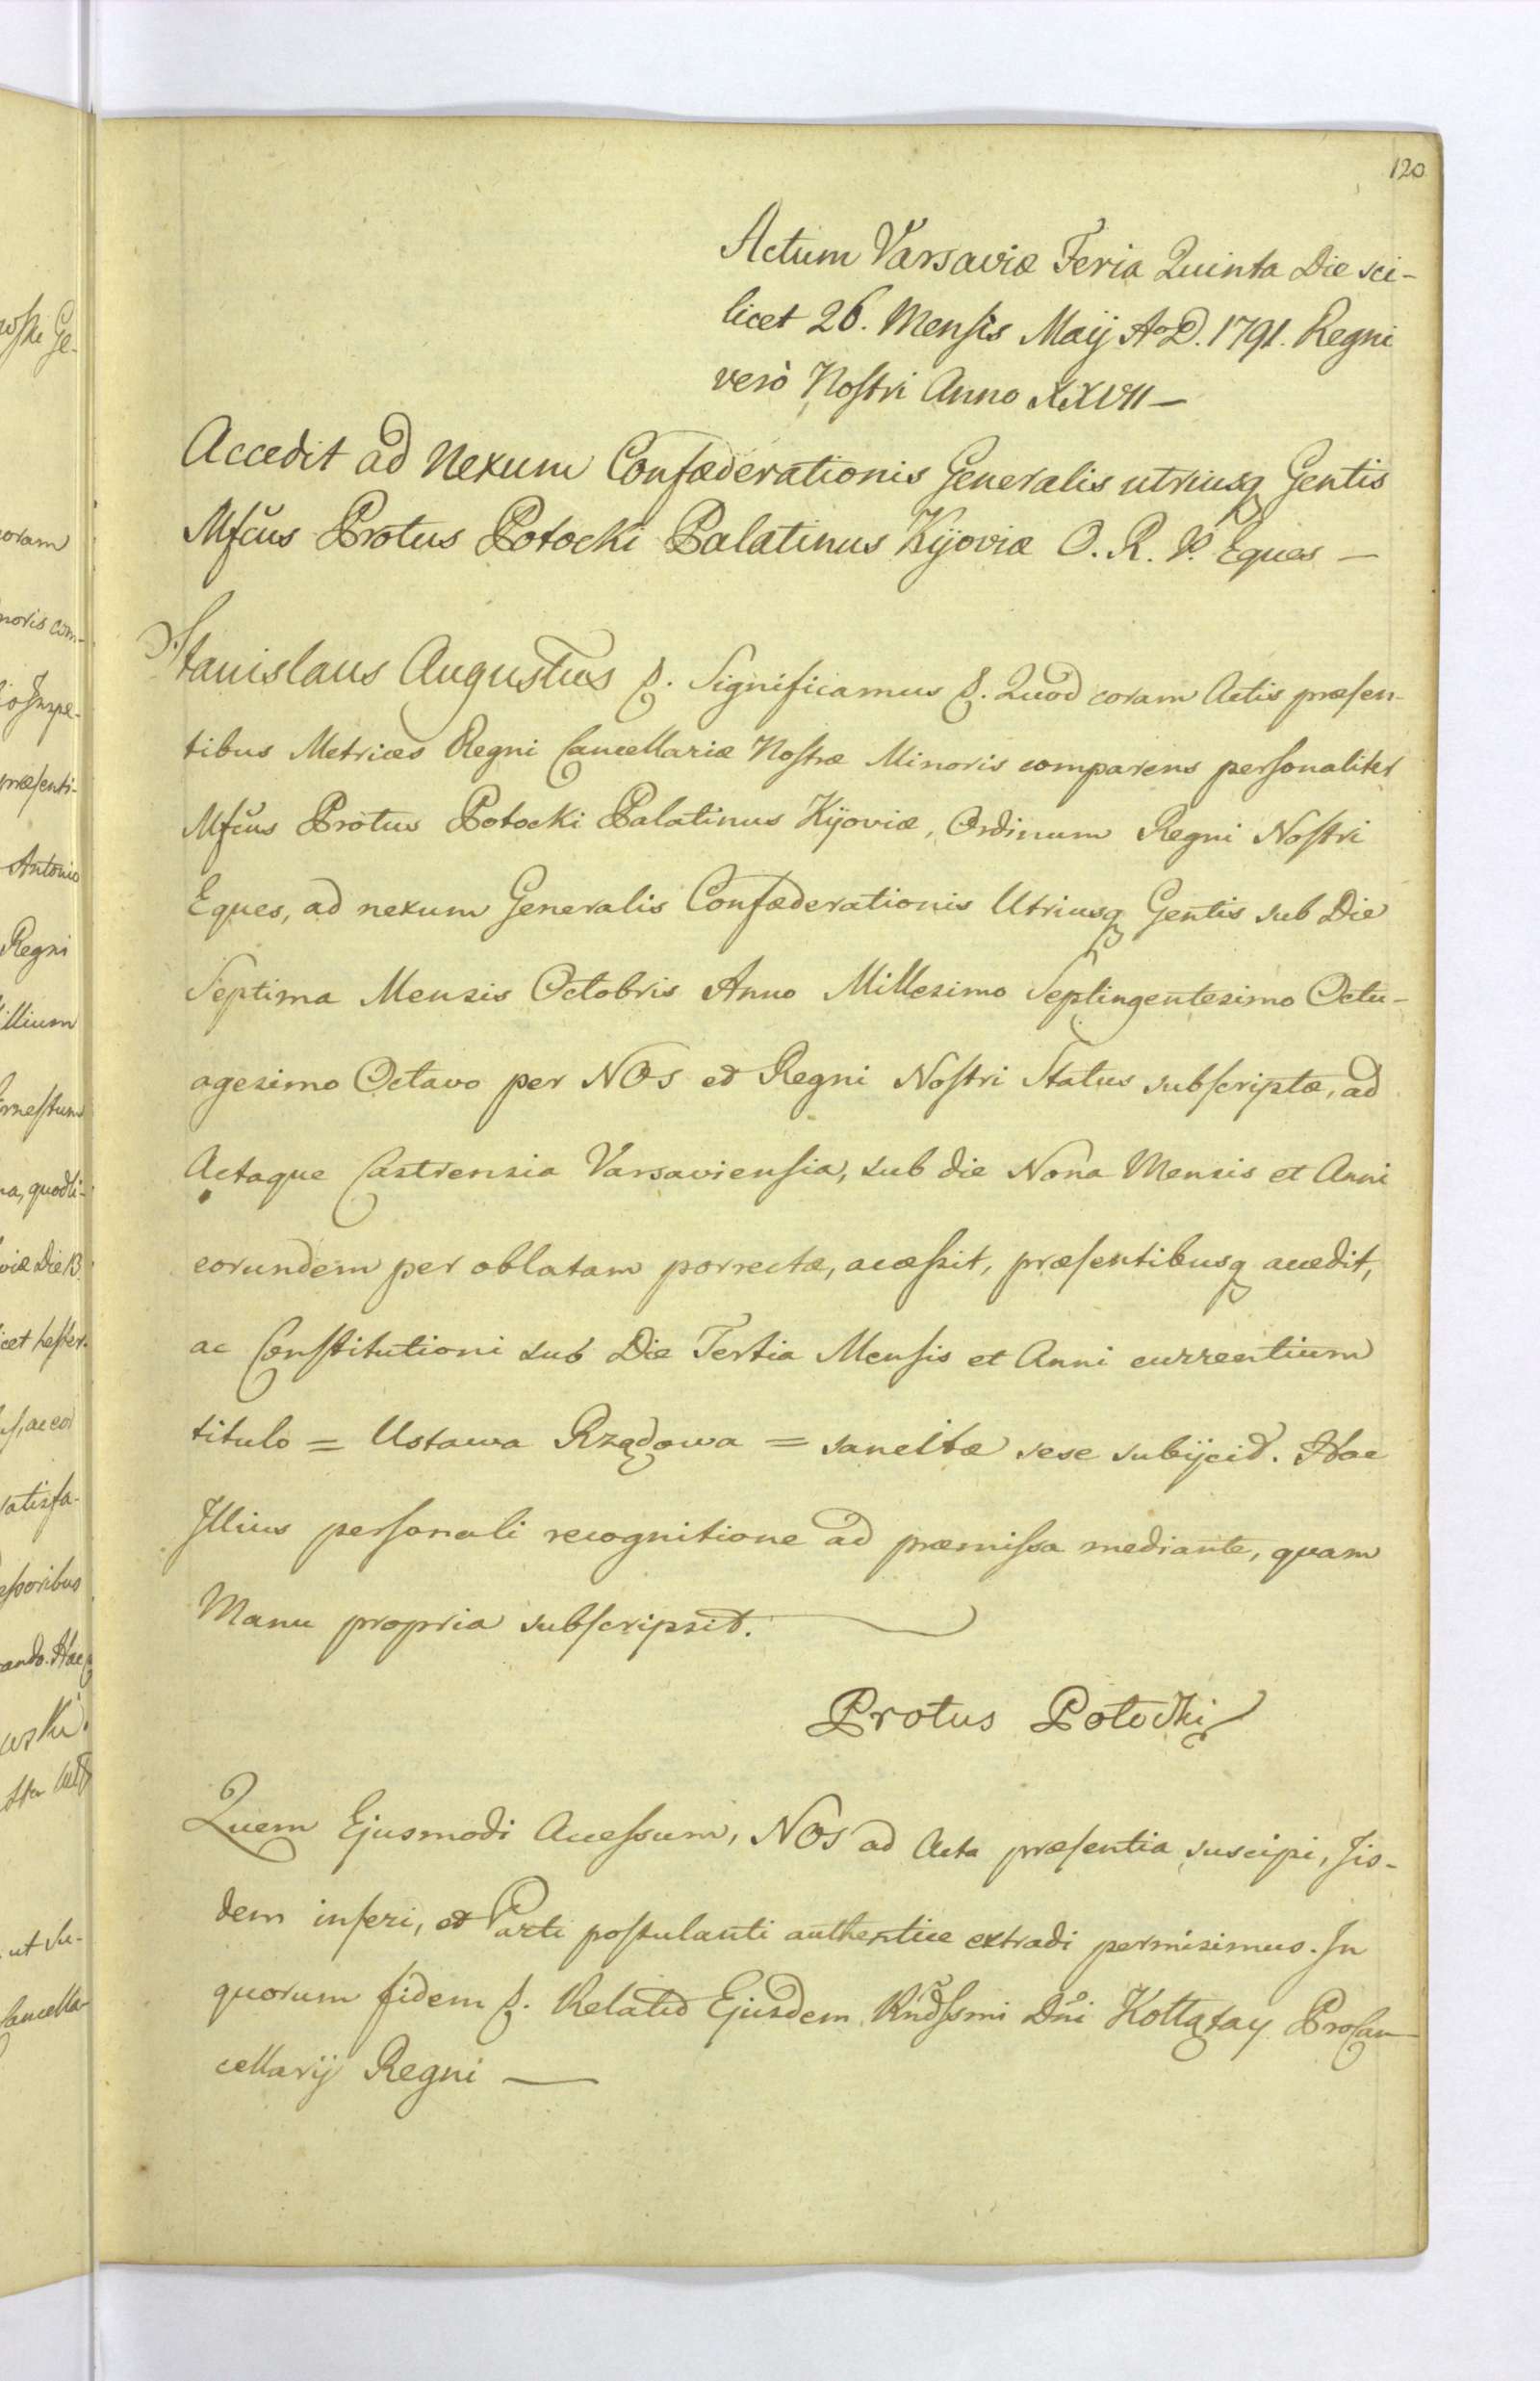 120
Actum Varsaviæ Feria Quinta Die sci-
licet 26. Mensis Maij AoD. 1791. Regni
verò Nostri Anno XXVII —
Accedit ad Nexum Confæderationis Generalis utriusq Gentis
Mfcus Protus Potocki Palatinus Kijoviæ O. R. P. Eques —
Stanislaus Augustus &. Significamus &. Quod coram Actis præsen-
tibus Metrices Regni Cancellariæ Nostræ Minoris comparens personaliter
Mfcus Protus Potocki Palatinus Kijoviæ, Ordinum Regni Nostri
Eques, ad nexum Generalis Confæderationis Utriusq Gentis sub Die
Septima Mensis Octobris Anno Millesimo Septingentesimo Octu-
agesimo Octavo per NOS et Regni Nostri Status subscriptæ, ad
Actaque Castrensia Varsaviensia, sub die Nona Mensis et Anni
eorundem per oblatam porrectæ, accessit, præsentibusq accedit,
ac Constitutioni sub Die Tertia Mensis et Anni currentium
titulo = Ustawa Rządowa = sancitæ sese subijcit. Hac
Illius personali recognitione ad præmissa mediante, quam
Manu propria subscripsit.
Protus Potocki
Quem Ejusmodi Accessum, NOS ad Acta præsentia suscipi, Iis-
dem inseri, et Parti postulanti authentice extradi permisimus. In
quorum fidem &. Relatio Ejusdem Rndssmi Dni Kołłątay ProCan-
cellarij Regni —
oram
Antonio
Regni
illium